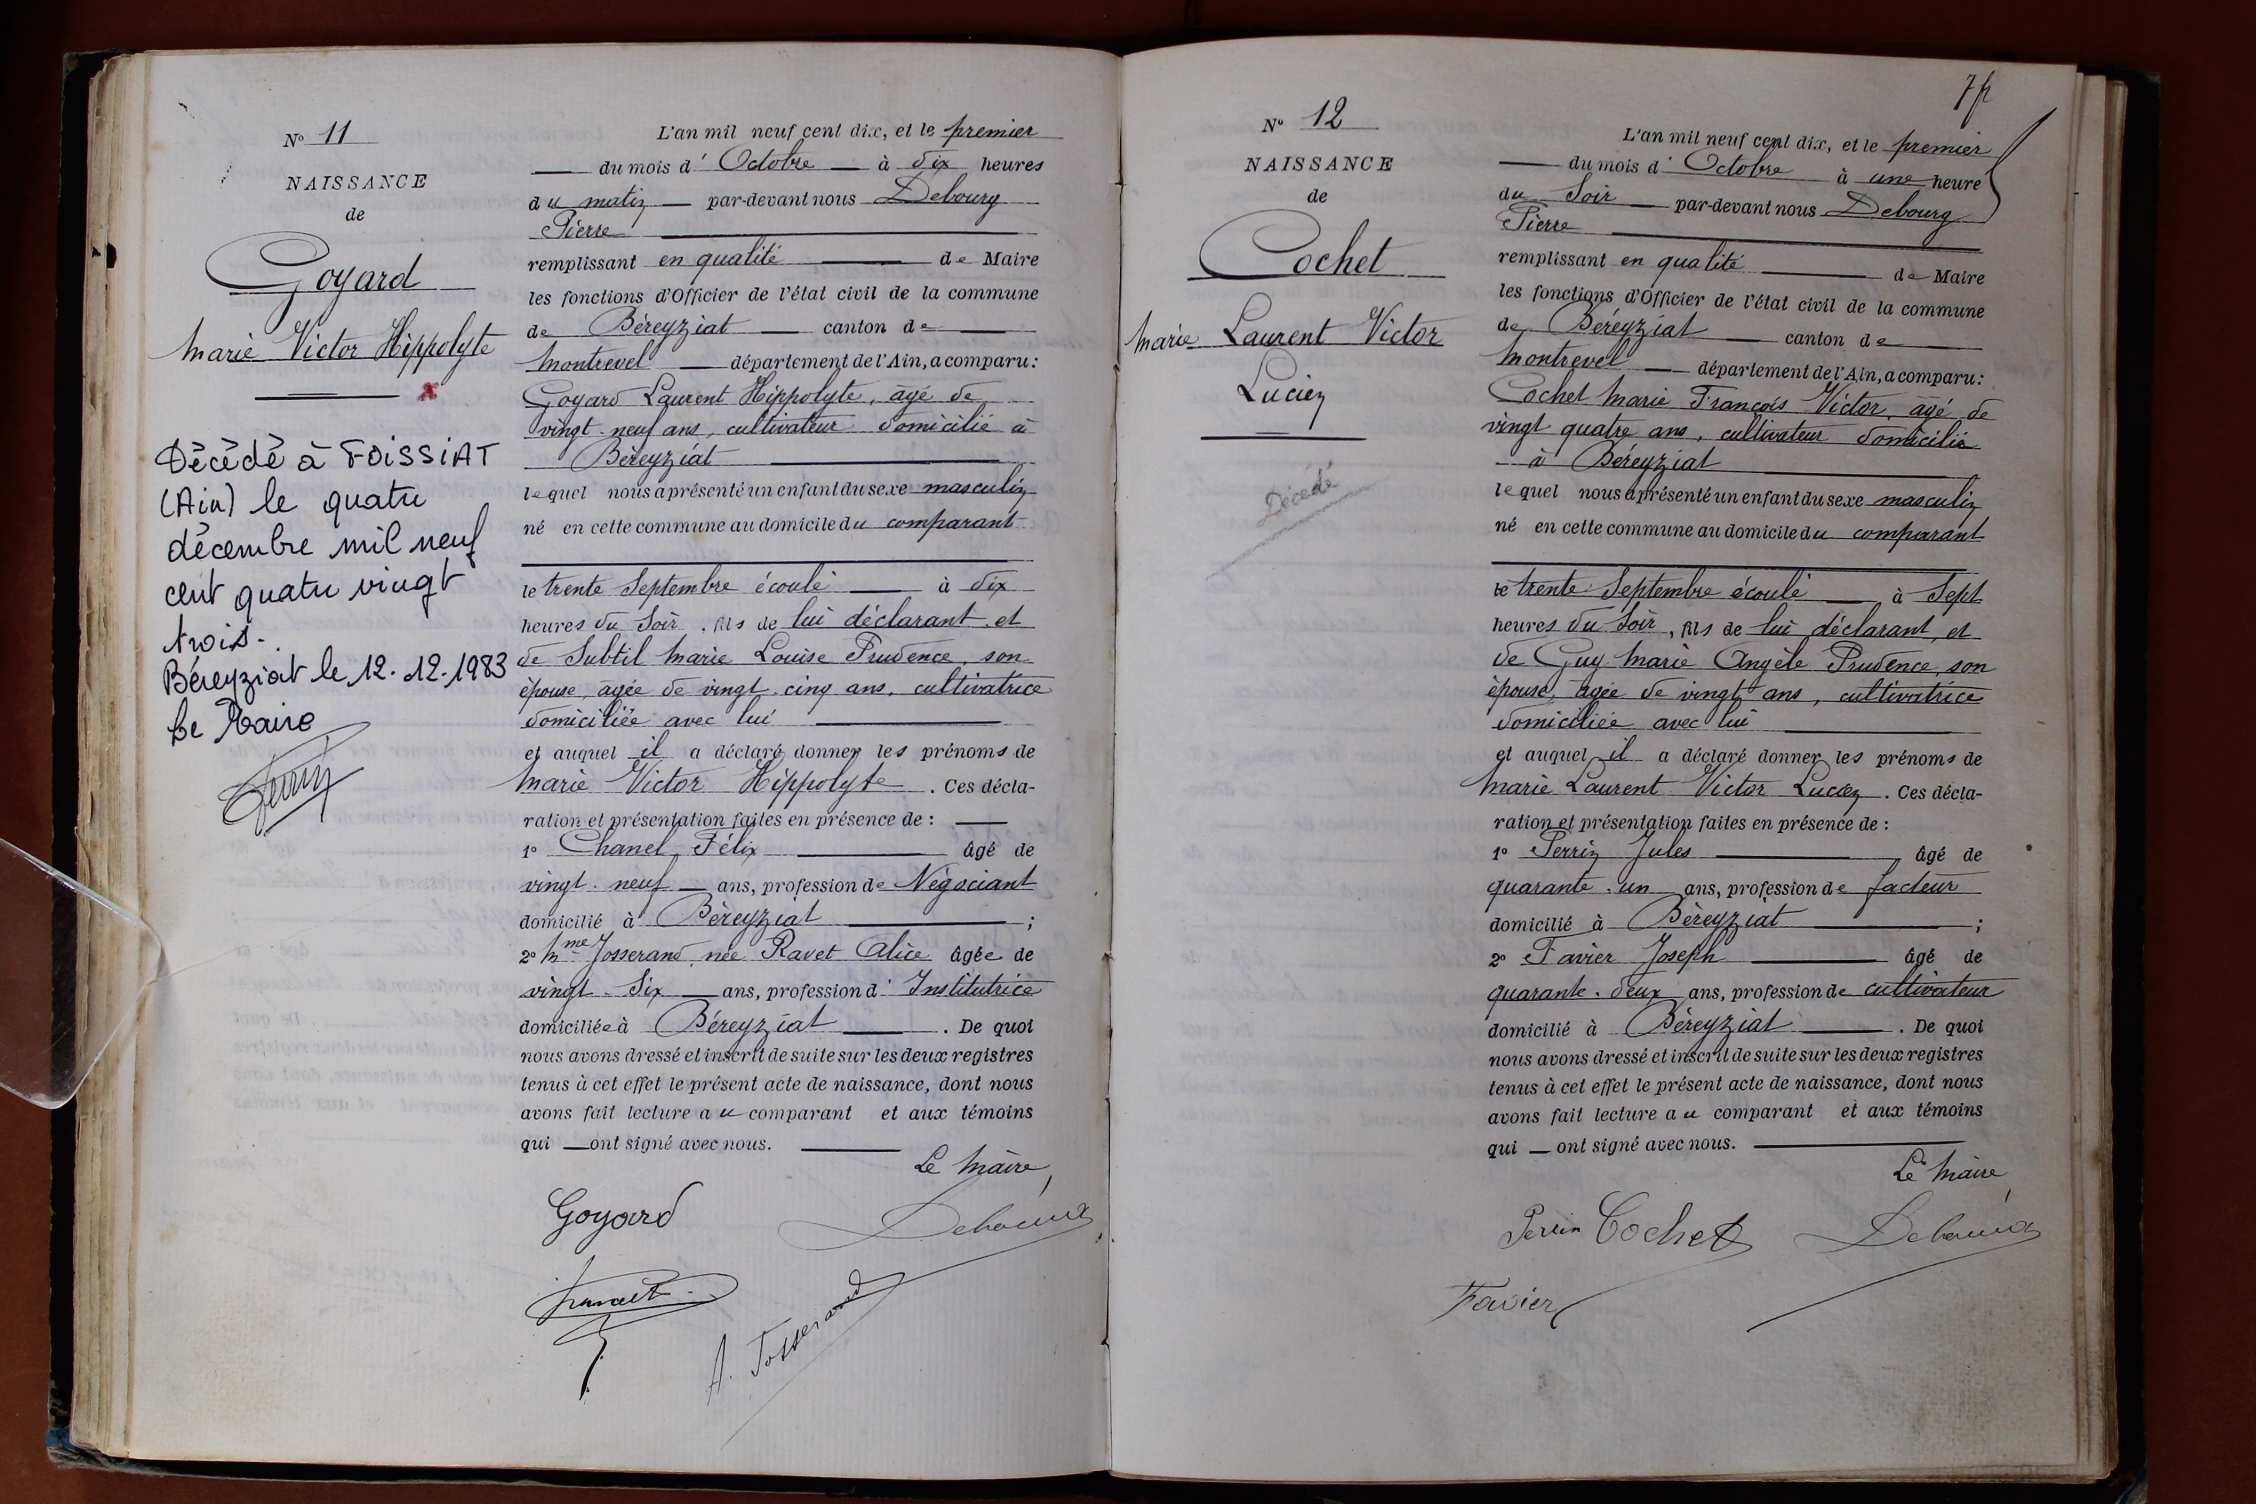 N° 11
NAISSANCE
de
Goyard
Marie Victor Hippolyte
x
Décédé à FOISSIAT
(Ain) le quatre
décembre mil neuf
cent quatre vingt
trois.
Béreyziat le 12.12.1983
Le Maire
L'an mil neuf cent dix, et le premier
du mois d'Octobre à dix heures
du matin par-devant nous Debourg
Pierre
remplissant en qualité de Maire
les fonctions d'Officier de l'état civil de la commune
de Béreyziat canton de
Montrevel département de l'Ain, a comparu:
Goyard Laurent Hippolyte, âgé de
vingt-neuf ans, cultivateur domicilié à
Béreyziat
lequel nous a présenté un enfant du sexe masculin
né en cette commune au domicile du comparant
le trente Septembre écoulé à dix
heures du Soir, fils de lui déclarant et
de Subtil Marie Louise Prudence, son
épouse, âgée de vingt-cinq ans, cultivatrice
domiciliée avec lui
et auquel il a déclaré donner les prénoms de
Marie Victor Hippolyte. Ces décla-
ration et présentation faites en présence de :
1° Chanel Félix âgé de
vingt-neuf ans, profession de Négociant
domicilié à Béreyziat ;
2° Mme Josserand née Ravet Alice âgée de
vingt-Six ans, profession d'Institutrice
domiciliée à Béreyziat. De quoi
nous avons dressé et inscrit de suite sur les deux registres
tenus à cet effet le présent acte de naissance, dont nous
avons fait lecture au comparant et aux témoins
qui ont signé avec nous.
Le Maire,
Goyard Debourg
A. Josserand
7p
N° 12
NAISSANCE
de
Cochet
Marie Laurent Victor
Lucien
Décédé
L'an mil neuf cent dix, et le premier
du mois d'Octobre à une heure
du Soir par-devant nous Debourg
Pierre
remplissant en qualité de Maire
les fonctions d'Officier de l'état civil de la commune
de Béreyziat canton de
Montrevel département de l'Ain, a comparu:
Cochet Marie François Victor, âgé de
vingt quatre ans, cultivateur domicilié
à Béreyziat
lequel nous a présenté un enfant du sexe masculin
né en cette commune au domicile du comparant
le trente Septembre écoulé à Sept
heures du Soir, fils de lui déclarant, et
de Guy Marie Angèle Prudence, son
épouse, âgée de vingt ans, cultivatrice
domiciliée avec lui
et auquel il a déclaré donner les prénoms de
Marie Laurent Victor Lucien. Ces décla-
ration et présentation faites en présence de :
1° Perrin Jules âgé de
quarante-un ans, profession de facteur
domicilié à Béreyziat ;
2° Favier Joseph âgé de
quarante-deux ans, profession de cultivateur
domicilié à Béreyziat. De quoi
nous avons dressé et inscrit de suite sur les deux registres
tenus à cet effet le présent acte de naissance, dont nous
avons fait lecture au comparant et aux témoins
qui ont signé avec nous.
Le Maire,
Perrin Cochet Debourg
Favier